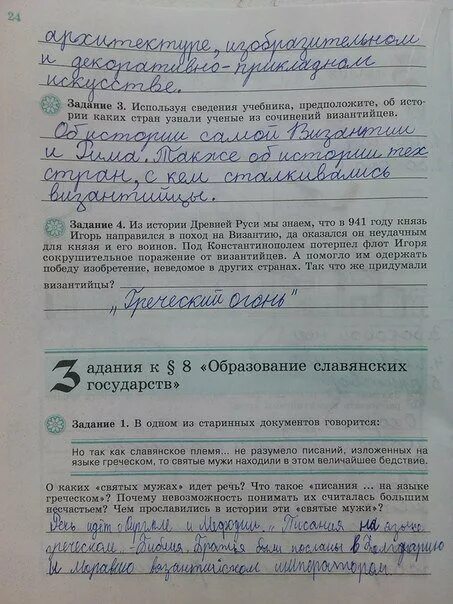 24
архитектуре, изобразительном
и декоративно-прикладном
искусстве.
Задание 3. Используя сведения учебника, предположите, об ис-
тории каких стран узнали ученые из сочинений византийцев.
Об истории самой Византии
и Рима. Также об истории тех
стран, с кем сталкивались
византийцы.
Задание 4. Из истории Древней Руси мы знаем, что в 941 году князь
Игорь направился в поход на Византию, да оказался он неудачным
для князя и его воинов. Под Константинополем потерпел флот Игоря
сокрушительное поражение от византийцев. А помогло им одержать
победу изобретение, неведомое в других странах. Так что же придумали
византийцы?
„Греческий огонь"
Задания к § 8 «Образование славянских
государств»
Задание 1. В одном из старинных документов говорится:
Но так как славянское племя... не разумело писаний, изложенных на
языке греческом, то святые мужи находили в этом величайшее бедствие.
О каких «святых мужах» идет речь? Что такое «писания ... на языке
греческом»? Почему невозможность понимать их считалась большим
несчастьем? Чем прославились в истории эти «святые мужи»?
Речь идёт о Кирилле и Мефодии. „Писания на языке
греческом - Библия. Братья были посланы в Болгарию
и Моравию византийским императором